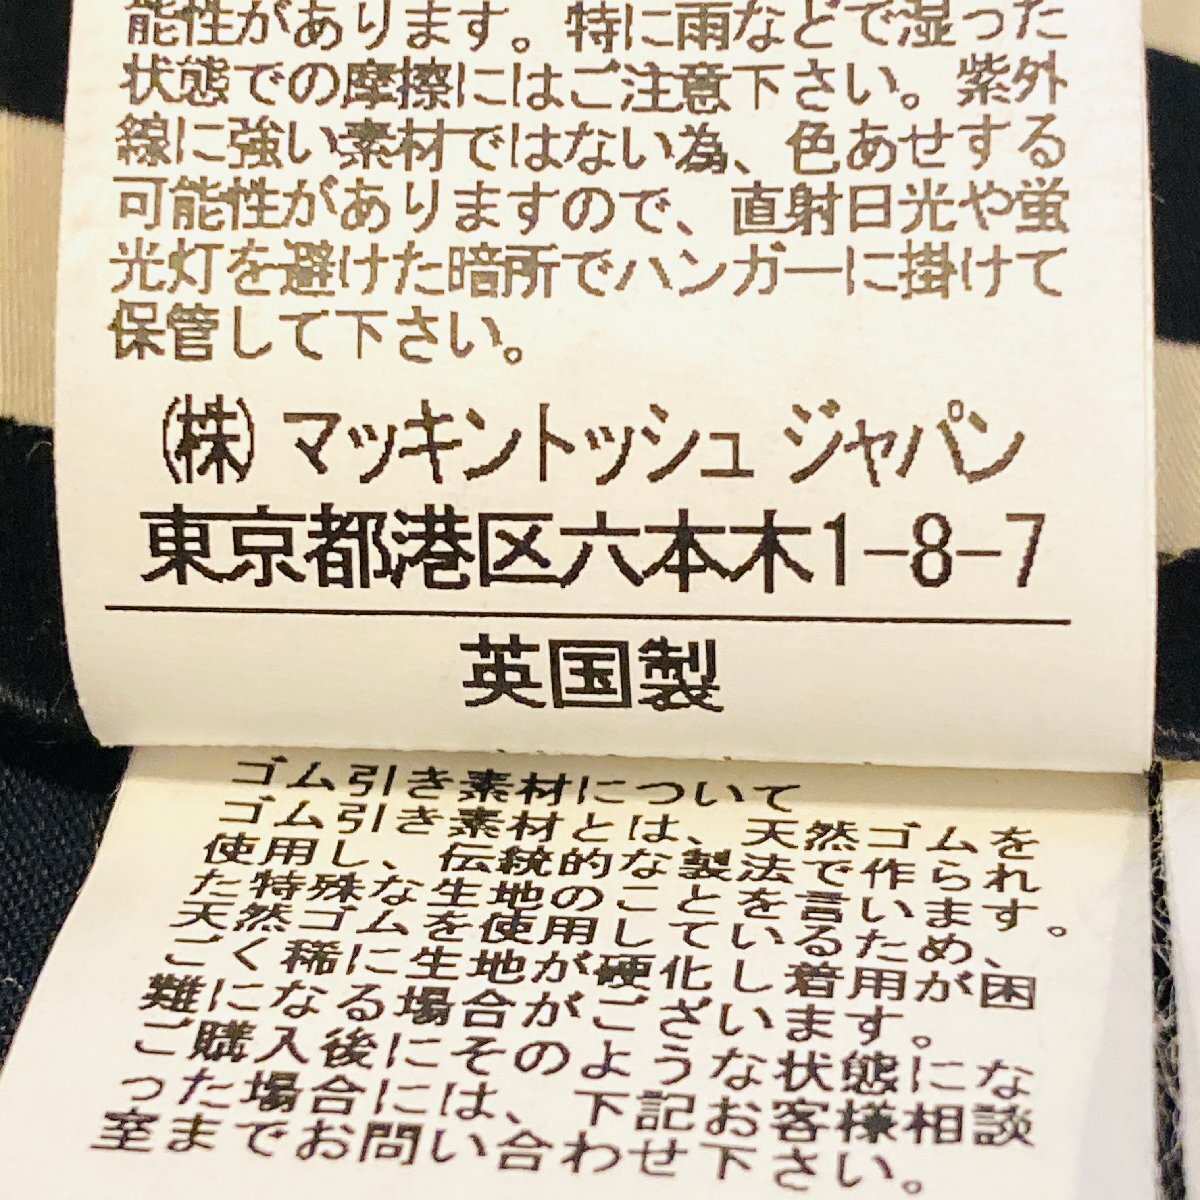 能性があります。特に雨などで湿った
状態での摩擦にはご注意下さい。紫外
線に強い素材ではない為、色あせする
可能性がありますので、直射日光や蛍
光灯を避けた暗所でハンガーに掛けて
保管して下さい。
㈱ マッキントッシュ ジャパン
東京都港区六本木1-8-7
英国製
ゴム引き素材について
ゴム引き素材とは、天然ゴムを
使用し、伝統的な製法で作られ
た特殊な生地のことを言います。
天然ゴムを使用しているため、
ごく稀に生地が硬化し着用が困
難になる場合がございます。
ご購入後にそのような状態にな
った場合には、下記お客様相談
室までお問い合わせ下さい。